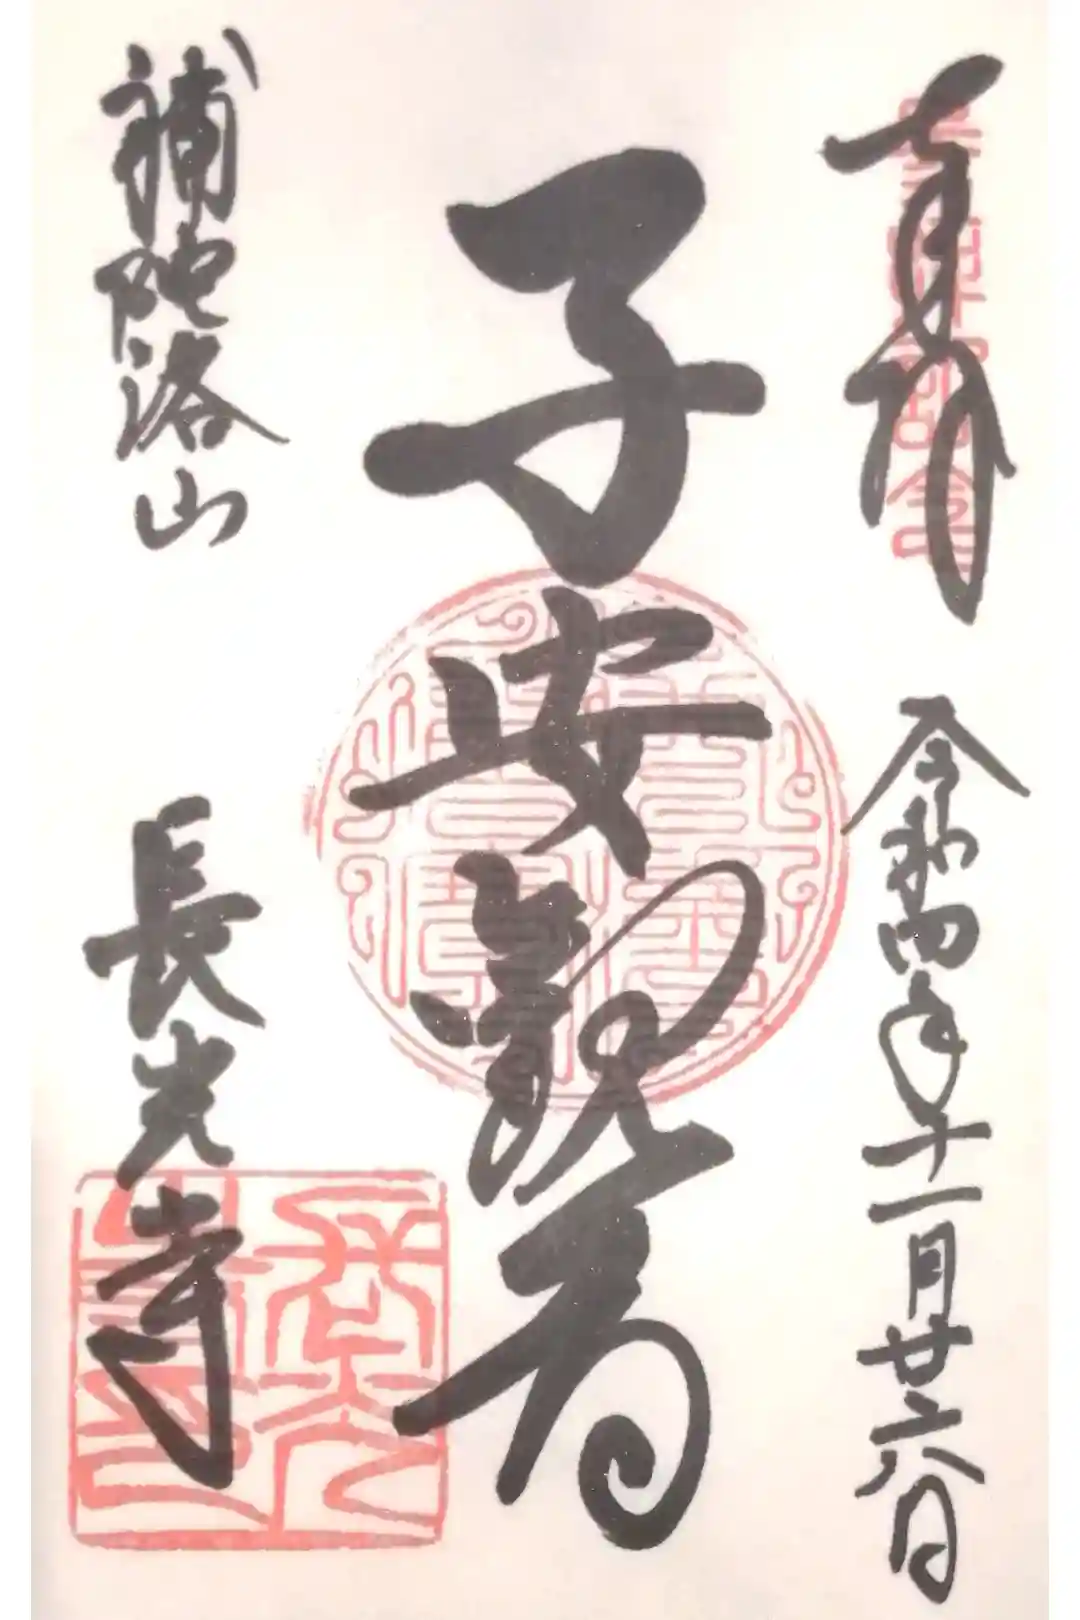 奉拝
令和四年十一月廿六日
子安観音
補陀洛山
長光寺